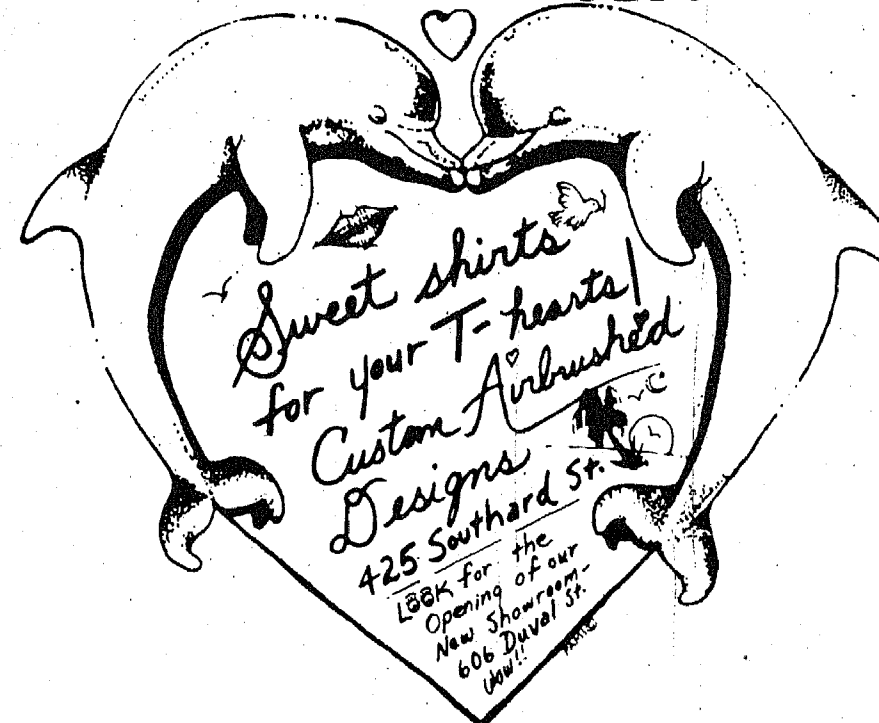 Sweet shirts
for your T-hearts!
Custom Airbrushed
Designs
425 Southard St.
LOOK for the
Opening of our
New Showroom-
606 Duval St.
Wow!!